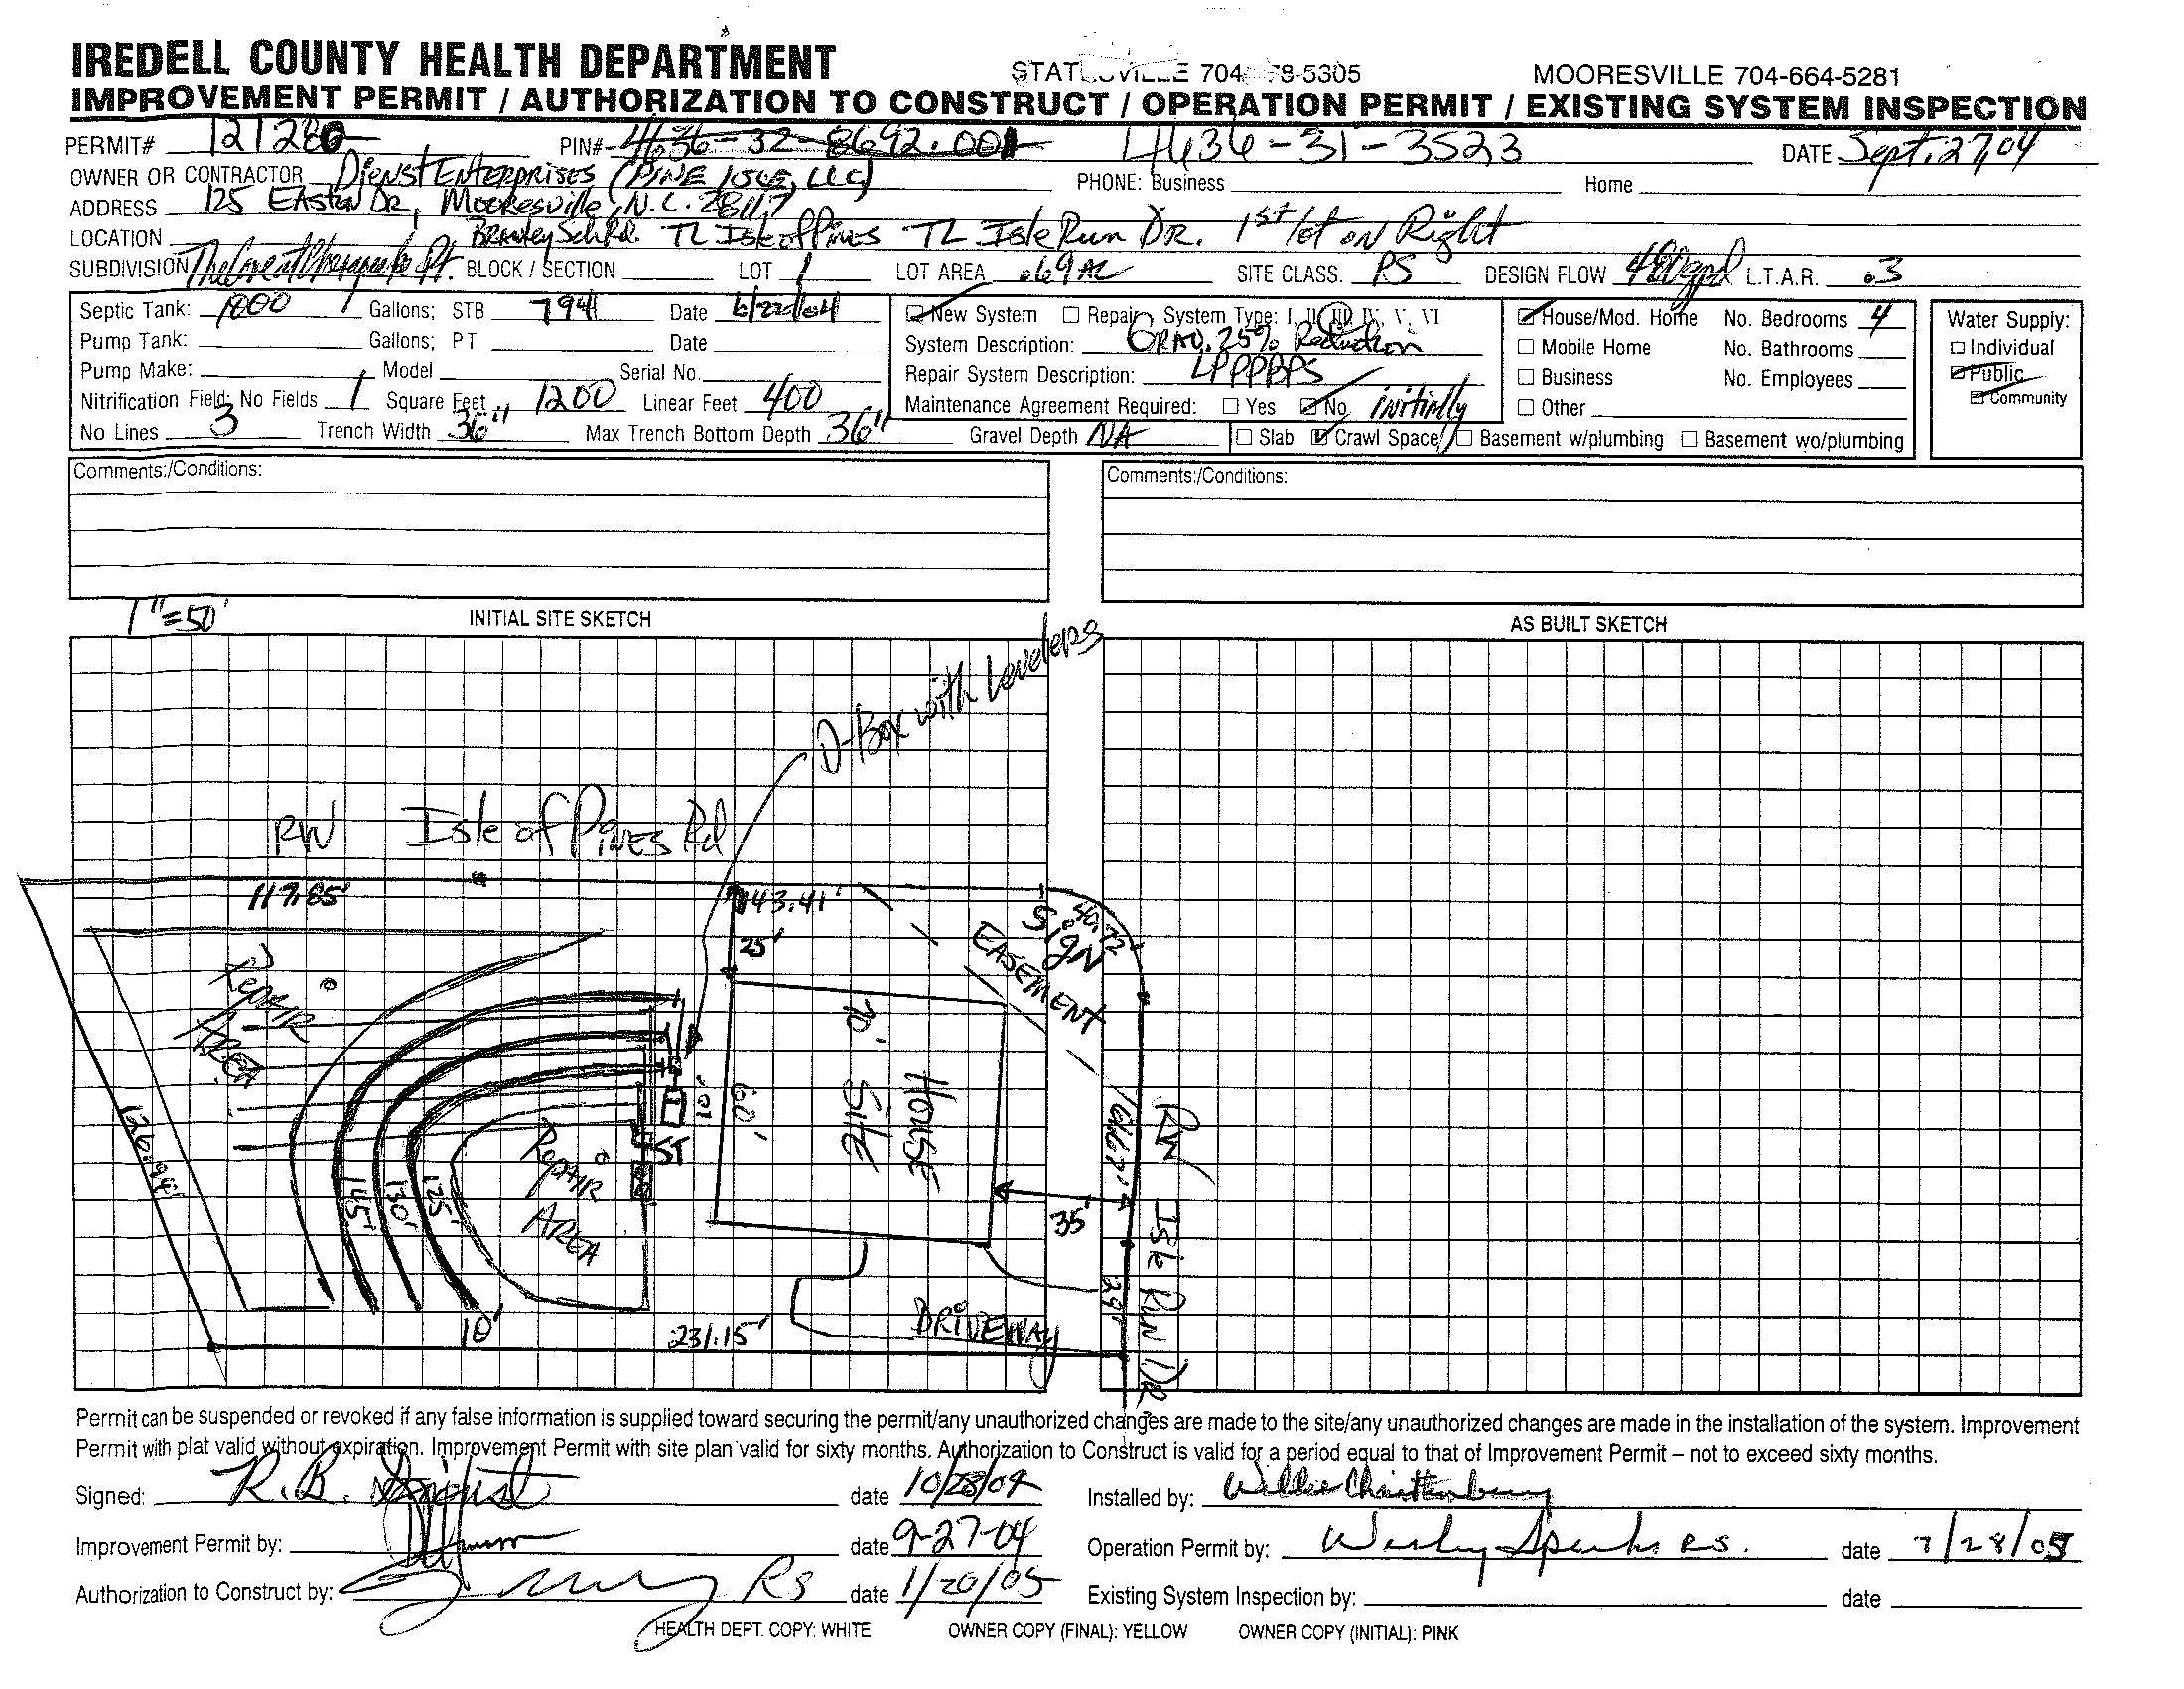 IREDELL COUNTY HEALTH DEPARTMENT
STATESVILLE 704 78-5305 MOORESVILLE 704-664-5281
IMPROVEMENT PERMIT / AUTHORIZATION TO CONSTRUCT / OPERATION PERMIT / EXISTING SYSTEM INSPECTION
PERMIT# 121280 PIN# 4636-32-8692.001 4636-31-3523 DATE Sept. 27, 04
OWNER OR CONTRACTOR Dienst Enterprises (Pine Isle, LLC) PHONE: Business Home
ADDRESS 125 Easton Dr, Mooresville, N.C. 28117
LOCATION Brawley Sch Rd. TL Isle of Pines TL Isle Run Dr. 1st lot on Right
SUBDIVISION The Cove at Chesapeake Pt. BLOCK / SECTION LOT 1 LOT AREA .69 AC SITE CLASS. PS DESIGN FLOW 480gpd L.T.A.R. .3
Septic Tank: 1000 Gallons; STB 794 Date 6/22/04
Pump Tank: Gallons; PT Date
Pump Make: Model Serial No.
Nitrification Field: No Fields 1 Square Feet 1200 Linear Feet 400
No Lines 3 Trench Width 36" Max Trench Bottom Depth 36" Gravel Depth NA
New System Repair System Type: I, II, III, IV, V, VI
System Description: Grav. 25% Reduction
Repair System Description: LPPPBPS
Maintenance Agreement Required: Yes No initially
House/Mod. Home No. Bedrooms 4
Mobile Home No. Bathrooms
Business No. Employees
Other
Slab Crawl Space Basement w/plumbing Basement wo/plumbing
Water Supply:
Individual
Public
Community
Comments:/Conditions: Comments:/Conditions:
1"=50' INITIAL SITE SKETCH AS BUILT SKETCH
D-Box with Levelers
RW Isle of Pines Rd
117.85' 143.41' 40.72'
Sign
EASEMENT
25'
Repair
AREA
70'
House
Site
60'
10'
ST
Repair
AREA
126.94'
145' 130' 125'
35'
RW Isle Run Dr.
29'
10'
231.15'
DRIVEWAY
Permit can be suspended or revoked if any false information is supplied toward securing the permit/any unauthorized changes are made to the site/any unauthorized changes are made in the installation of the system. Improvement
Permit with plat valid without expiration. Improvement Permit with site plan valid for sixty months. Authorization to Construct is valid for a period equal to that of Improvement Permit – not to exceed sixty months.
Signed: R.B. date 10/28/04 Installed by: Willie
Improvement Permit by: date 9-27-04 Operation Permit by: Wesley R.S. date 7/28/05
Authorization to Construct by: RS date 1/20/05 Existing System Inspection by: date
HEALTH DEPT. COPY: WHITE OWNER COPY (FINAL): YELLOW OWNER COPY (INITIAL): PINK